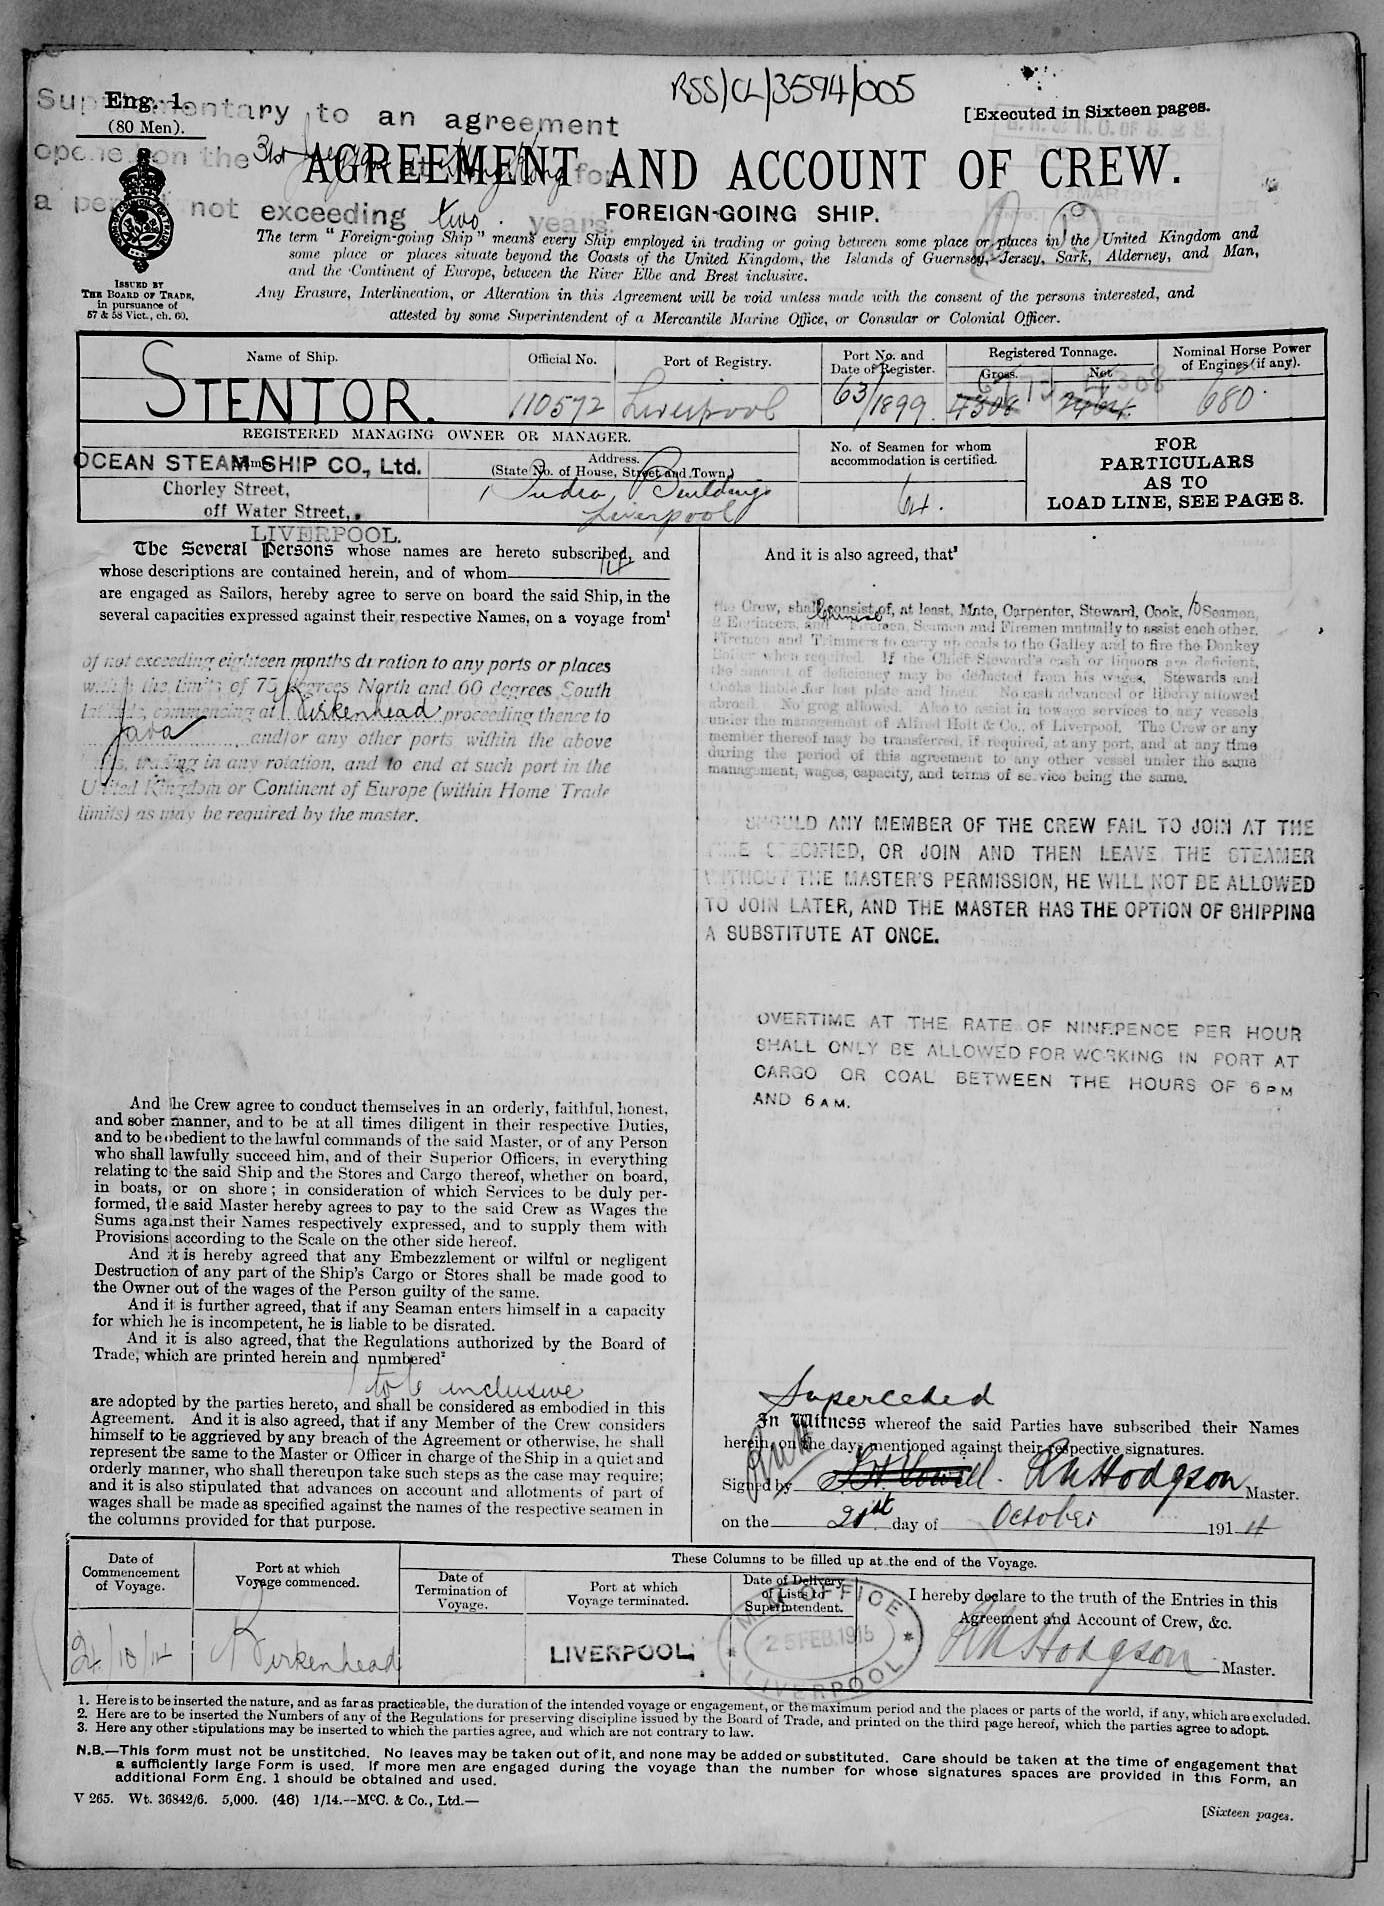 RSS/CL/3594/005
Eng. 1.
(80 Men).
[Executed in Sixteen pages.
Supplementary to an agreement
opened on the 31st at for
a period not exceeding two years.
AGREEMENT AND ACCOUNT OF CREW.
FOREIGN-GOING SHIP.
ISSUED BY
THE BOARD OF TRADE,
in pursuance of
57 & 58 Vict., ch. 60.
The term "Foreign-going Ship" means every Ship employed in trading or going between some place or places in the United Kingdom and
some place or places situate beyond the Coasts of the United Kingdom, the Islands of Guernsey, Jersey, Sark, Alderney, and Man,
and the Continent of Europe, between the River Elbe and Brest inclusive.
Any Erasure, Interlineation, or Alteration in this Agreement will be void unless made with the consent of the persons interested, and
attested by some Superintendent of a Mercantile Marine Office, or Consular or Colonial Officer.
Name of Ship.
Official No.
Port of Registry.
Port No. and
Date of Register.
Registered Tonnage.
Gross.
Net
Nominal Horse Power
of Engines (if any).
STENTOR.
110572
Liverpool
63/1899
6773
4308
4308
680.
REGISTERED MANAGING OWNER OR MANAGER.
OCEAN STEAM SHIP CO., Ltd.
Chorley Street,
off Water Street,
LIVERPOOL.
Address.
(State No. of House, Street and Town.)
1 India Buildings
Liverpool
No. of Seamen for whom
accommodation is certified.
64.
FOR
PARTICULARS
AS TO
LOAD LINE, SEE PAGE 3.
The Several Persons whose names are hereto subscribed, and
whose descriptions are contained herein, and of whom 14
are engaged as Sailors, hereby agree to serve on board the said Ship, in the
several capacities expressed against their respective Names, on a voyage from¹
of not exceeding eighteen months duration to any ports or places
within the limits of 75 degrees North and 60 degrees South
latitude, commencing at Birkenhead proceeding thence to
Java and/or any other ports within the above
limits, trading in any rotation, and to end at such port in the
United Kingdom or Continent of Europe (within Home Trade
limits) as may be required by the master.
And the Crew agree to conduct themselves in an orderly, faithful, honest,
and sober manner, and to be at all times diligent in their respective Duties,
and to be obedient to the lawful commands of the said Master, or of any Person
who shall lawfully succeed him, and of their Superior Officers, in everything
relating to the said Ship and the Stores and Cargo thereof, whether on board,
in boats, or on shore; in consideration of which Services to be duly per-
formed, the said Master hereby agrees to pay to the said Crew as Wages the
Sums against their Names respectively expressed, and to supply them with
Provisions according to the Scale on the other side hereof.
And it is hereby agreed that any Embezzlement or wilful or negligent
Destruction of any part of the Ship's Cargo or Stores shall be made good to
the Owner out of the wages of the Person guilty of the same.
And it is further agreed, that if any Seaman enters himself in a capacity
for which he is incompetent, he is liable to be disrated.
And it is also agreed, that the Regulations authorized by the Board of
Trade, which are printed herein and numbered²
1 to 6 inclusive
are adopted by the parties hereto, and shall be considered as embodied in this
Agreement. And it is also agreed, that if any Member of the Crew considers
himself to be aggrieved by any breach of the Agreement or otherwise, he shall
represent the same to the Master or Officer in charge of the Ship in a quiet and
orderly manner, who shall thereupon take such steps as the case may require;
and it is also stipulated that advances on account and allotments of part of
wages shall be made as specified against the names of the respective seamen in
the columns provided for that purpose.
And it is also agreed, that³
the Crew, shall consist of, at least, Mate, Carpenter, Steward, Cook, 10 Seamen,
2 Engineers, and Chinese Firemen, Seamen and Firemen mutually to assist each other.
Firemen and Trimmers to carry up coals to the Galley and to fire the Donkey
Boiler when required. If the Chief Steward's cash or liquors are deficient,
the amount of deficiency may be deducted from his wages. Stewards and
Cooks liable for lost plate and linen. No cash advanced or liberty allowed
abroad. No grog allowed. Also to assist in towage services to any vessels
under the management of Alfred Holt & Co., of Liverpool. The Crew or any
member thereof may be transferred, if required, at any port, and at any time
during the period of this agreement to any other vessel under the same
management, wages, capacity, and terms of service being the same.
SHOULD ANY MEMBER OF THE CREW FAIL TO JOIN AT THE
TIME SPECIFIED, OR JOIN AND THEN LEAVE THE STEAMER
WITHOUT THE MASTER'S PERMISSION, HE WILL NOT BE ALLOWED
TO JOIN LATER, AND THE MASTER HAS THE OPTION OF SHIPPING
A SUBSTITUTE AT ONCE.
OVERTIME AT THE RATE OF NINEPENCE PER HOUR
SHALL ONLY BE ALLOWED FOR WORKING IN PORT AT
CARGO OR COAL BETWEEN THE HOURS OF 6 PM
AND 6 AM.
Superceded
In Witness whereof the said Parties have subscribed their Names
herein, on the days mentioned against their respective signatures.
Signed by R H Hodgson Master.
on the 21st day of October 1914
Date of
Commencement
of Voyage.
Port at which
Voyage commenced.
These Columns to be filled up at the end of the Voyage.
Date of
Termination of
Voyage.
Port at which
Voyage terminated.
Date of Delivery
of Lists to
Superintendent.
I hereby declare to the truth of the Entries in this
Agreement and Account of Crew, &c.
24/10/14
Birkenhead
LIVERPOOL
OFFICE
25 FEB. 1915
LIVERPOOL
R H Hodgson Master.
1. Here is to be inserted the nature, and as far as practicable, the duration of the intended voyage or engagement, or the maximum period and the places or parts of the world, if any, which are excluded.
2. Here are to be inserted the Numbers of any of the Regulations for preserving discipline issued by the Board of Trade, and printed on the third page hereof, which the parties agree to adopt.
3. Here any other stipulations may be inserted to which the parties agree, and which are not contrary to law.
N.B.—This form must not be unstitched. No leaves may be taken out of it, and none may be added or substituted. Care should be taken at the time of engagement that
a sufficiently large Form is used. If more men are engaged during the voyage than the number for whose signatures spaces are provided in this Form, an
additional Form Eng. 1 should be obtained and used.
V 265. Wt. 36842/6. 5,000. (46) 1/14.--McC. & Co., Ltd.—
[Sixteen pages.